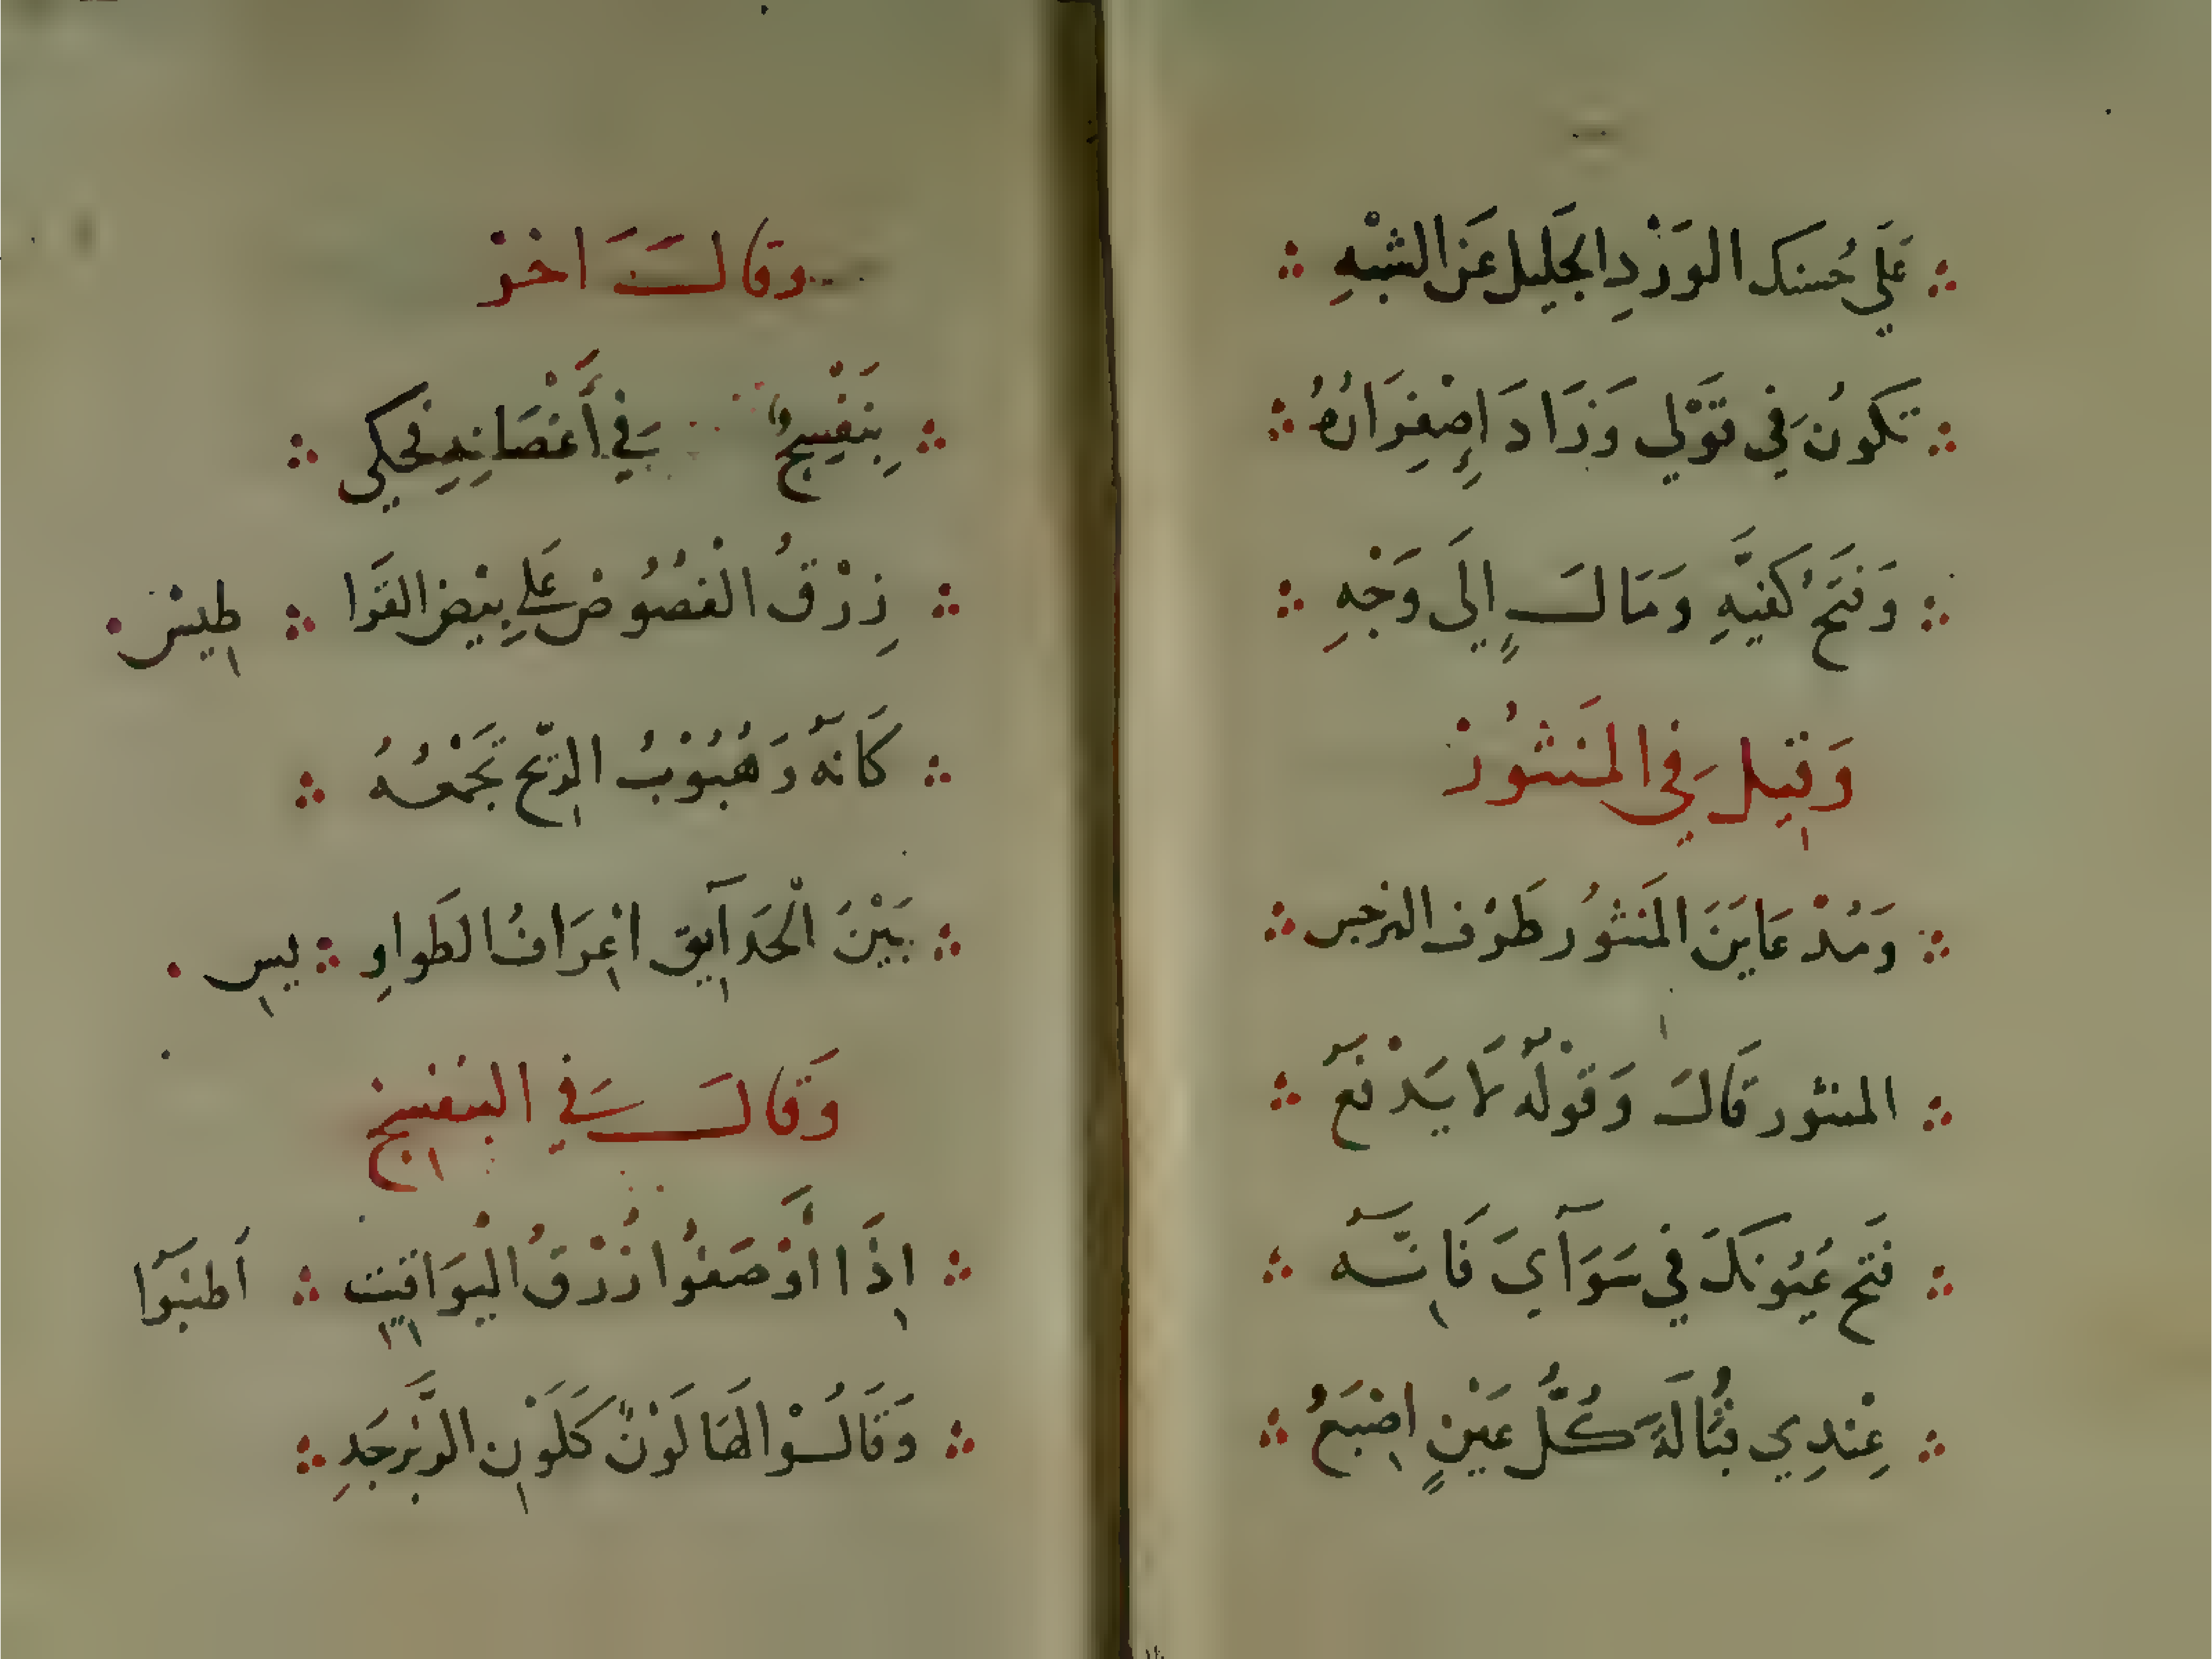 عَلَي حُسنك الوَرْدِ الجَلِيل عَن الشبْهِ
تَكونُ فِي تَوَلي وَزَادَ اِصْفِرَارُهُ
وَفتَحَ كَفيَّهِ وَمَالَ إلَى وَجْهِ
وَقيلَ فِي المَنثُورْ
وَمُذْ عَايَنَ المَنثُور طَرْف النرجس
المنثور قَالَ وَقَوْلُه لَا يَدْفَعَ
فتح عُيُونَكَ فِي سَوَآيَ فَانّه
عِنْدِي قُبَالَةَ كُلّ عَيْنٍ اصْبَعُ
وَقَالَ اخرْ
بنَفْسِجٌ فِي أَغْصَانِهِ فحكي
زرْقُ الفصُوصْ عَلي بيْض القَرَا طيسْ
كَانهُ وَهُبُوْبُ الرّيح تَجْمَعُهُ
بَيْنَ الْحَدَآيق اعْرَافُ الطَوَاوِ يس
وَقَالَ فِي البنفسج
اِذَا اوْصَفُوا زرْقُ اليوَاقيت اَطنبُوا
وَقَالُوْا لهَا لَوْنٌ كَلَوْنِ الزَّبرجَدِ